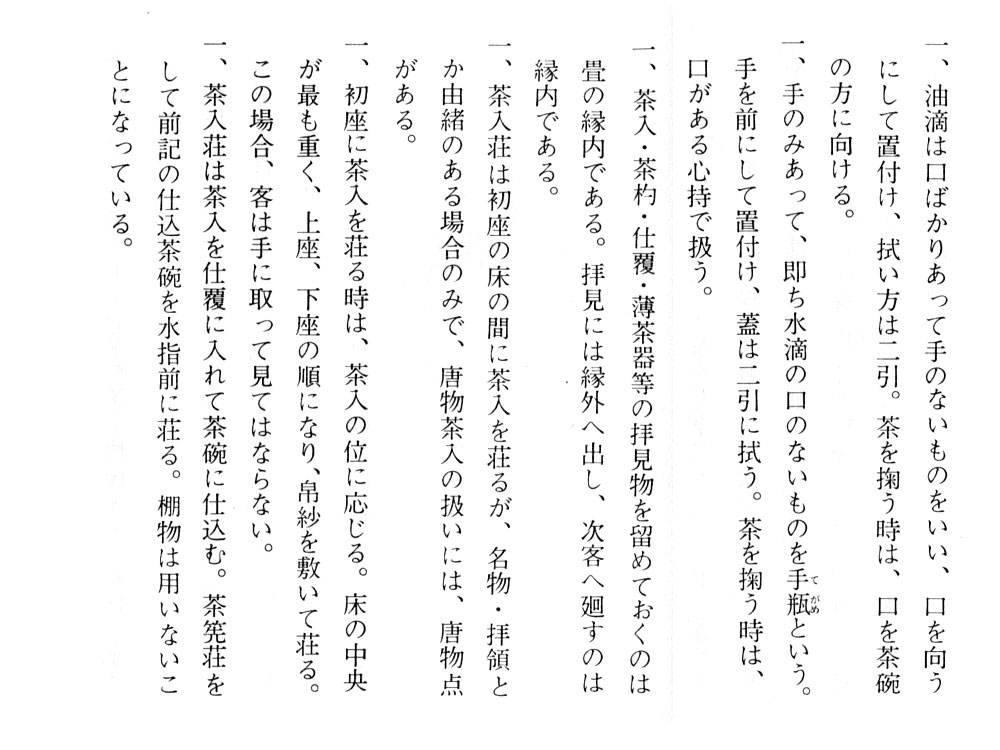 一、油滴は口ばかりあって手のないものをいい、口を向う
にして置付け、拭い方は二引。茶を掬う時は、口を茶碗
の方に向ける。
一、手のみあって、即ち水滴の口のないものを手瓶という。
てがめ
手を前にして置付け、蓋は二引に拭う。茶を掬う時は、
口がある心持で扱う。
一、茶入・茶杓・仕覆・薄茶器等の拝見物を留めておくのは
畳の縁内である。拝見には縁外へ出し、次客へ廻すのは
縁内である。
一、茶入荘は初座の床の間に茶入を荘るが、名物・拝領と
か由緒のある場合のみで、唐物茶入の扱いには、唐物点
がある。
一、初座に茶入を荘る時は、茶入の位に応じる。床の中央
が最も重く、上座、下座の順になり、帛紗を敷いて荘る。
この場合、客は手に取って見てはならない。
一、茶入荘は茶入を仕覆に入れて茶碗に仕込む。茶筅荘を
して前記の仕込茶碗を水指前に荘る。棚物は用いないこ
とになっている。